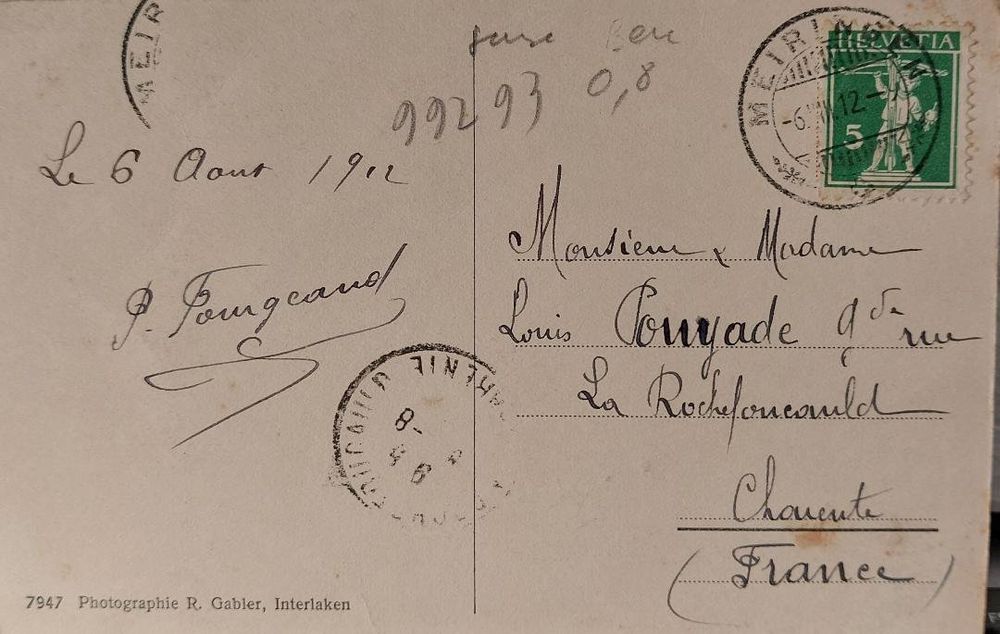 MEIR
HELVETIA
5
MEIRINGEN
-6.VIII.12.-
99293 0,8
Le 6 Aout 1912
P. Fourgeaud
Monsieur & Madame
Louis Pouyade gde rue
La Rochefoucauld
Charente
(France)
7947 Photographie R. Gabler, Interlaken